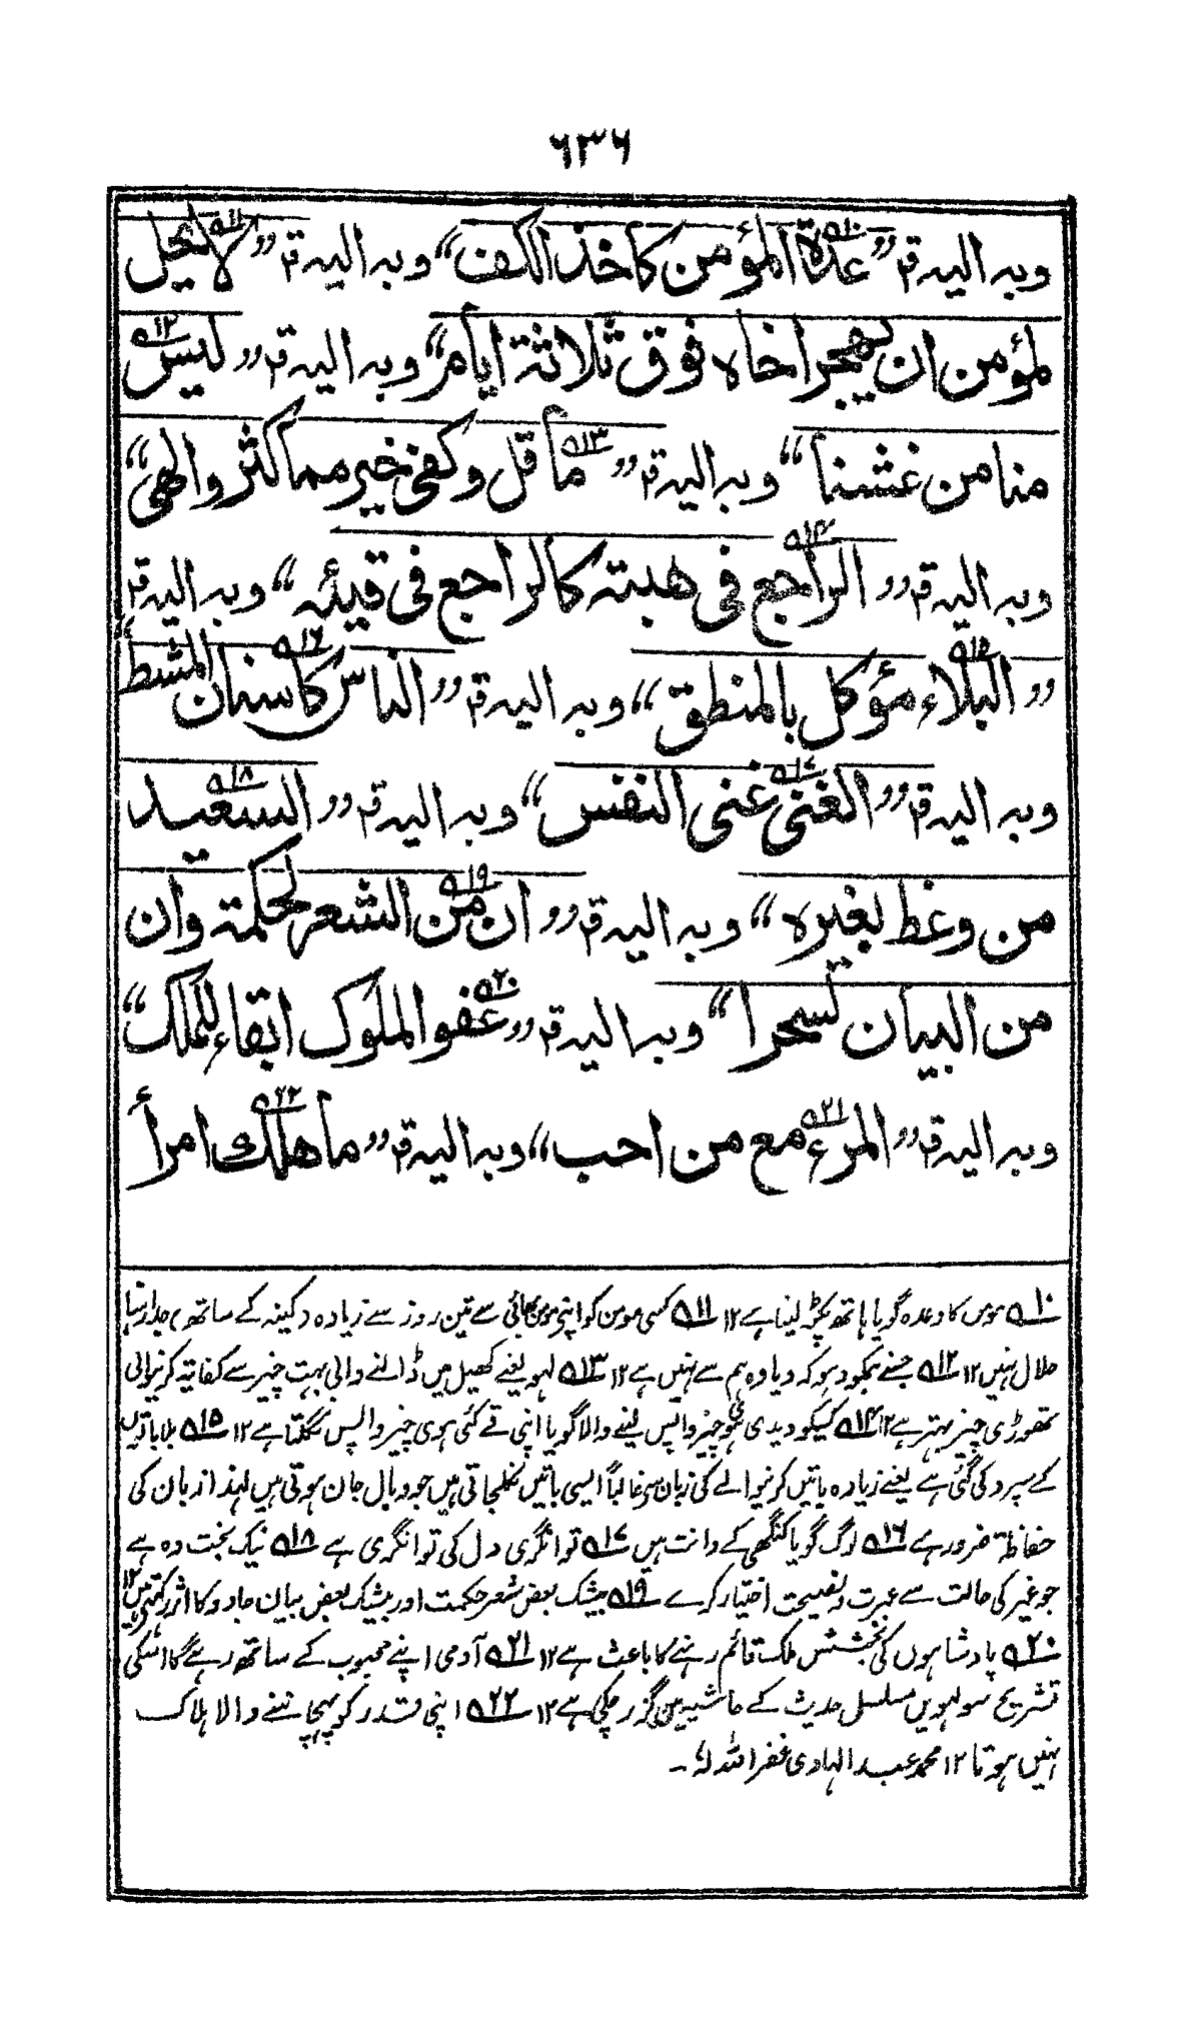 ٦٣٦
وبه اليه قم ”عدة المؤمن كأخذ الكف“ وبه اليه قم ”لا يحل
لمؤمن ان يهجر اخاه فوق ثلاثة ايام“ وبه اليه قم ”ليس
منا من غشنا“ وبه اليه قم ”ما قل وكفى خير مما كثر والهى“
وبه اليه قم ”الراجع فى هبته كالراجع فى قيئه“ وبه اليه قم
”البلاء مؤكل بالمنطق“ وبه اليه قم ”الناس كاسنان المشط“
وبه اليه قم ”الغنى غنى النفس“ وبه اليه قم ”السعيد
من وعظ بغيره“ وبه اليه قم ”ان من الشعر لحكمة وان
من البيان لسحرا“ وبه اليه قم ”عفو الملوك ابقاء للملك“
وبه اليه قم ”المرء مع من احب“ وبه اليه قم ”ما هلك امرأ
۵۱۰ مومن کا وعدہ گویا ہاتھ پکڑ لینا ہے ۱۲ ۵۱۱ کسی مومن کو اپنی مومن بھائی سے تین روز سے زیادہ کینہ کے ساتھ جدا رہنا
حلال نہیں ۱۲ ۵۱۲ جسنے ہمکو دہوکہ دیا وہ ہم سے نہیں ہے ۱۲ ۵۱۳ لہو یعنے کھیل میں ڈالنے والی بہت چیز سے کفایۃ کرنیوالی
تھوڑی چیز بہتر ہے ۱۲ ۵۱۴ کسیکو دیدی ہوئی چیز واپس لینے والا گویا اپنی قے کئی ہوی چیز واپس نگلتا ہے ۱۲ ۵۱۵ بلا باتوں
کے سپرد کی گئی ہے یعنے زیادہ باتیں کرنیوالے کی زبان سے غالباً ایسی باتیں نکلجاتی ہیں جو وبال جان ہوتی ہیں لہذا زبان کی
حفاظۃ ضرور ہے ۵۱۶ لوگ گویا کنگھی کے دانت ہیں ۵۱۷ توانگری دل کی توانگری ہے ۵۱۸ نیک بخت وہ ہے
جو غیر کی حالت سے عبرت و نصیحت اختیار کرے ۵۱۹ بیشک بعض شعر حکمت اور بیشک بعض بیان جادو کا اثر رکھتے ہیں ۱۲
۵۲۰ پادشاہوں کی بخشش ملک قائم رہنے کا باعث ہے ۱۲ ۵۲۱ آدمی اپنے محبوب کے ساتھ رہے گا اسکی
تشریح سولہویں مسلسل حدیث کے حاشیہ میں گزر چکی ہے ۱۲ ۵۲۲ اپنی قدر کو پہچاننے والا ہلاک
نہیں ہوتا ۱۲ محمد عبد الہادی غفر اللہ لہ ۔